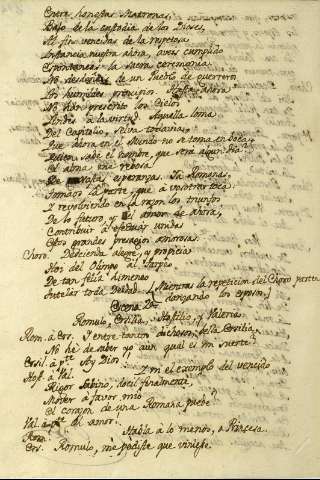 Entre honestas Matronas,
Bajo de la custodia de los Dioses,
Al fin vencidas de la repetosa
Constancia nuestra ahora, aveis cumplido
Espontaneas la sacra ceremonia.
No desdeñeis de un Pueblo de guerreros
Los humildes principios. Hasta ahora
No han prescrito los Cielos
a la virtud. Aquella loma
Del Capitolio, selva todavia,
Que ahora en el Mundo no se toma en boca,
Quien sabe el nombre, que será algun Dia?
El alma me rebosa
De vastas esperanzas. Ea Romanas,
Tomad la parte, que á vosotras toca.
Y revolviendo en la razon los triunfos
De lo futuro, y el amor de ahora,
Contribuir á efectuar unidas
Estos grandes presagios amorosa.
Choro. Descienda alegre, y propicia
Hoy del Olimpo al Tarpeo
De tan feliz Himeneo
Tutelar toda Deidad. [Mientras la repeticion del Choro parten
danzando los esposos.]
Scena 2ª
Romulo, Ersilia, Hostilio, y Valeria.
Rom. a Ers. Y entre tantos dichosos, bella Ersilia,
No he de saber yo aun qual es mi suerte?
Ersil. á pte. Ay Dios!
Host. á Val. Y en el exemplo del vencido
Rigor Sabino, docil finalmente,
Mover á favor mio
El corazon de una Romana puede?
Val. á pte. del amor.
Rom. Habla á lo menos, o Princesa.
Ers. Romulo, me pediste que viniese